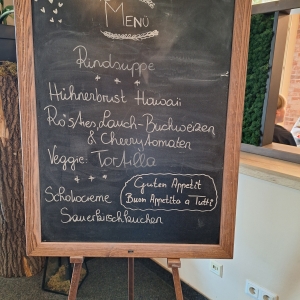 MENÜ
Rindsuppe
Hühnerbrust Hawaii
Ro'sties Lauch-Buchweizen
& Cherrytomaten
Veggie: Tortilla
Schokocreme
Sauerkirschkuchen
Guten Appetit
Buon Appetito a Tutti